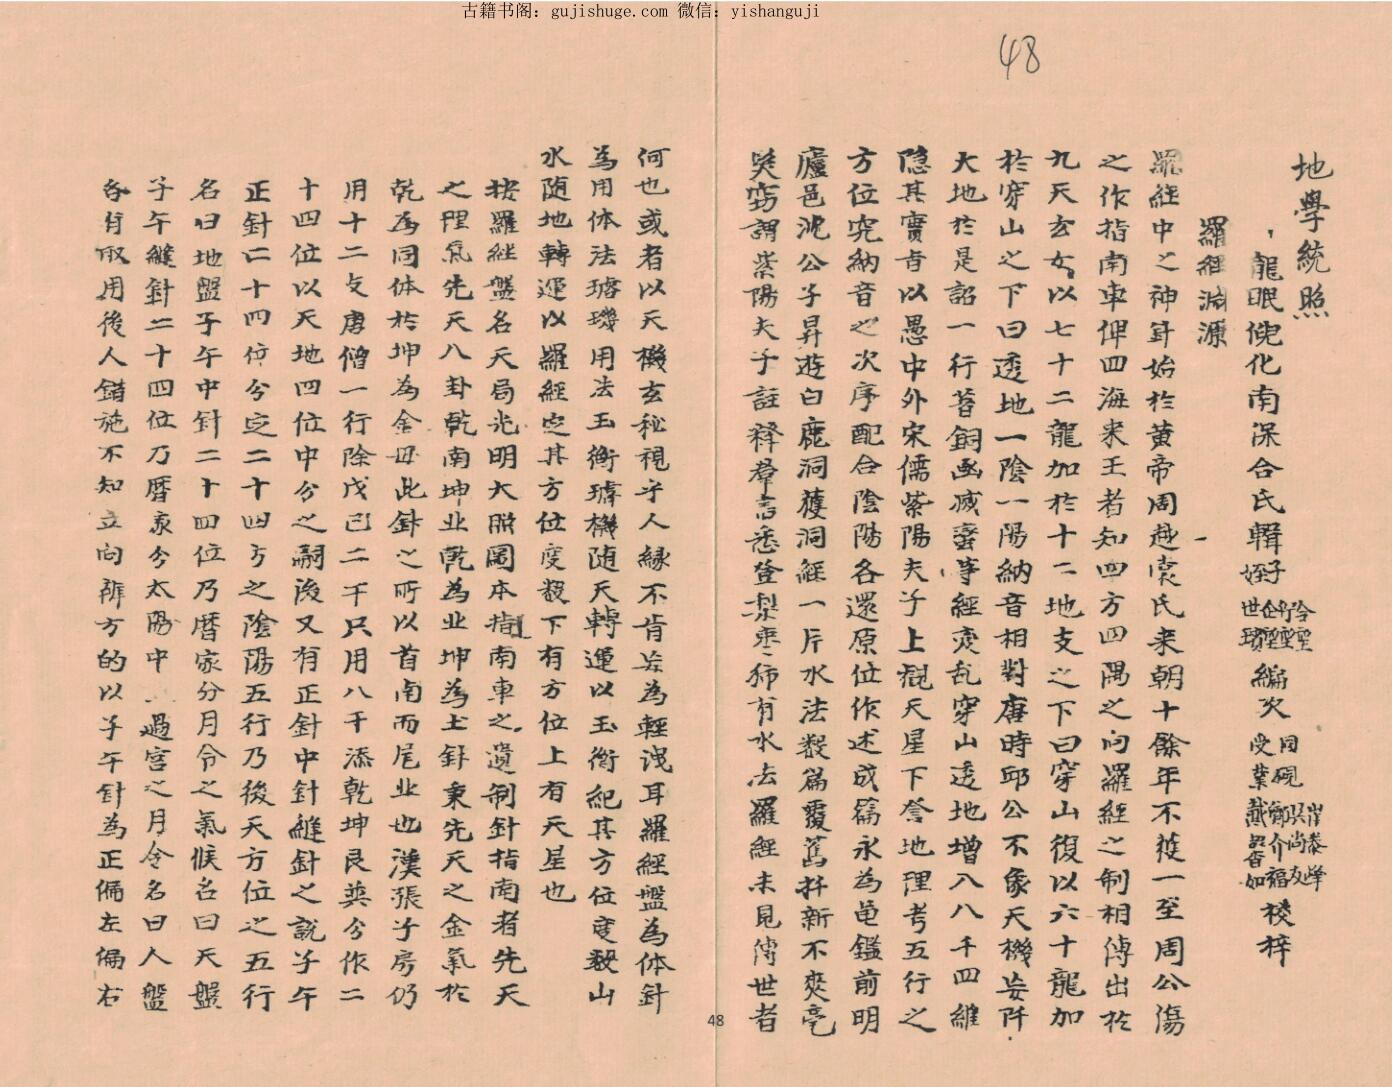 古籍书阁：gujishuge.com 微信：yishanguji
48
地學統照
龍眠倪化南深合氏輯子姪世 編次受業同硯 戴 鄭介福 吳尚友 校梓
羅經淵源
羅經中之神針始於黃帝周越裳氏来朝十餘年不獲一至周公傷
之作指南車俾四海来王者知四方四隅之向羅經之制相傳出於
九天玄女以七十二龍加於十二地支之下曰穿山復以六十龍加
於穿山之下曰透地一陰一陽納音相對唐時邱公不象天機妄阡
大地於是詔一行著銅凾滅蠻事經変乱穿山透地增八八千四維
隐其實者以愚中外宋儒紫陽夫子上觀天星下詧地理考五行之
方位究納音之次序配合陰陽各還原位作述成篇永為龟鑑前明
廬邑沈公子昇遊白鹿洞獲洞經一片水法数篇覆舊拚新不爽毫
矣窃謂紫陽夫子註釋羣書悉登梨枣獨有水法羅經未見傳世者
何也或者以天機玄秘視乎人緣不肯妄為輕洩耳羅經盤為体針
為用体法璿璣用法玉衡璿機随天轉運以玉衡紀其方位度数山
水随地轉運以羅經定其方位度数下有方位上有天星也
按羅經盤名天局光明大照圖本指南車之遺制針指南者先天
之理氣先天八卦乾南坤北乾為北坤為土針秉先天之金氣於
乾為同体於坤為金母此針之所以首南而尾北也漢張子房仍
用十二支唐僧一行除戊己二干只用八干添乾坤艮巽分作二
十四位以天地四位中分之嗣後又有正針中針縫針之說子午
正針二十四位分定二十四方之陰陽五行乃後天方位之五行
名曰地盤子午中針二十四位乃曆家分月令之氣候名曰天盤
子午縫針二十四位乃曆家分太陽中 過宫之月令名曰人盤
各有取用後人錯施不知立向辨方的以子午針為正偏左偏右
48